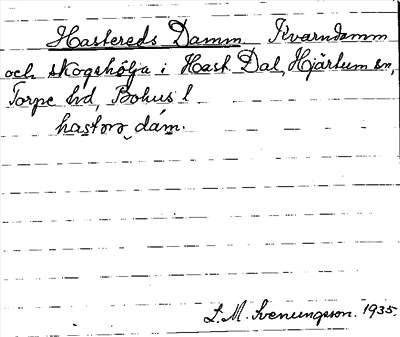 Hastereds Damm Kvarndamm
och skogshölja i Hast Dal, Hjärtum sn,
Torpe hd, Bohus l
dám.
L. M. Svenungsson. 1935.